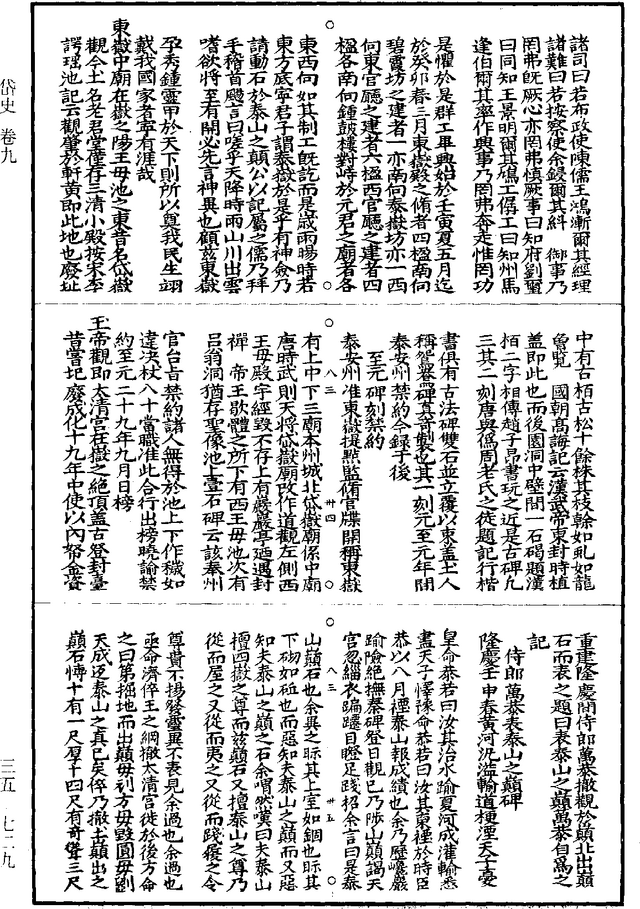 岱史 卷九
三五 七二九
諸司曰若布政使陳儒王鴻漸爾其經理
諸難曰若按察使余鍰爾其糾 御事乃
罔弗旣厥心亦罔弗慎厥事曰知府劉璽
曰同知王景明爾其礪工僝工曰知州馬
逢伯爾其率作興事乃罔弗奔走惟罔功
是懼於是群工畢興始於壬寅夏五月迄
於癸卯春三月東嶽殿之脩者四楹南向
碧霞坊之建者一亦南向泰嶽坊亦一西
向東官廳之建者六楹西官廳之建者四
楹各南向鍾鼓樓對峙於元君之廟者各
東西向如其制工旣訖而是歲雨暘時若
東方底寧君子謂泰嶽於是乎有神僉乃
請勳石於泰山之巔公以記屬之儒乃拜
手稽首颺言曰嗟乎天降時雨山川出雲
嗜欲將至有開必先言神異也顧茲東嶽
孕秀鍾靈甲於天下則所以奠我民生翊
戴我國家者寧有涯哉
東嶽中廟在嶽之陽王母池之東昔名岱嶽
觀今土名老君堂僅存三清小殿按宋李
諤瑶池記云觀肇於軒黃即此地也廢址
中有古栢古松十餘株其枝榦如虬如龍
魯覧 國朝高誨記云漢武帝東封時植
蓋即此也而後園洞中壁間一石碣題漢
栢二字相傳趙子昂書玩之近是古碑凡
三其二刻唐與僞周老氏之徒題記行楷
書俱有古法碑雙石並立覆以束蓋土人
稱鴛鴦碑真奇製也其一刻元至元年間
泰安州禁約今録于後
至元碑刻禁約
泰安州准東嶽提㸃監脩官牒開稱東嶽
有上中下三廟本州城北岱嶽廟係中廟
唐時武則天將岱嶽廟改作道觀左側西
王母殿宇經毀不存上有巖巖亭廼遇封
禪 帝王歇體之所下有西王母池次有
吕翁洞猶存聖像池上壹石碑云該奉州
官台旨禁約諸人無得於池上下作穢如
違决杖八十當職准此合行出榜曉諭禁
約至元二十九年九月日榜
玉帝觀即太清宫在嶽之絶頂蓋古登封臺
昔嘗圮廢成化十九年中使以内帑金資
重建隆慶間侍郎萬恭撤觀於巔北出巔
石而表之題曰表泰山之巔萬恭自爲之
記
侍郎萬恭表泰山之巔碑
隆慶壬申春黃河汎溢輸道梗湮天子憂
皇命恭若曰汝其治水踰夏河成灌輸悉
書天子懌陳命恭若曰汝其東禋於時臣
恭以八月禋泰山報成績也余乃歷巉巖
踰險絶撫秦碑登日觀已乃陟山巔謁天
宫忽緇衣踽踽目瞪足踐招余言曰是泰
山巔石也余異之眎其上室如錮也眎其
下砌如砥也而惡知夫泰山之巔而又惡
知夫泰山之巔之石余喟然嘆曰夫泰山
擅四嶽之尊而茲巔石又擅泰山之尊乃
從而屋之又從而夷之又從而踐癈之令
尊貴不揚發靈異不表見余過也余過也
亟命濟倅王之綱撤太清宫徙於後方命
之曰第掘地而出巔毋刋方毋毀圓毋剷
天成返泰山之真已矣倅乃撤去巔出之
巔石博十有一尺厚十四尺有奇聳三尺
八三 卅四
八三 卅五